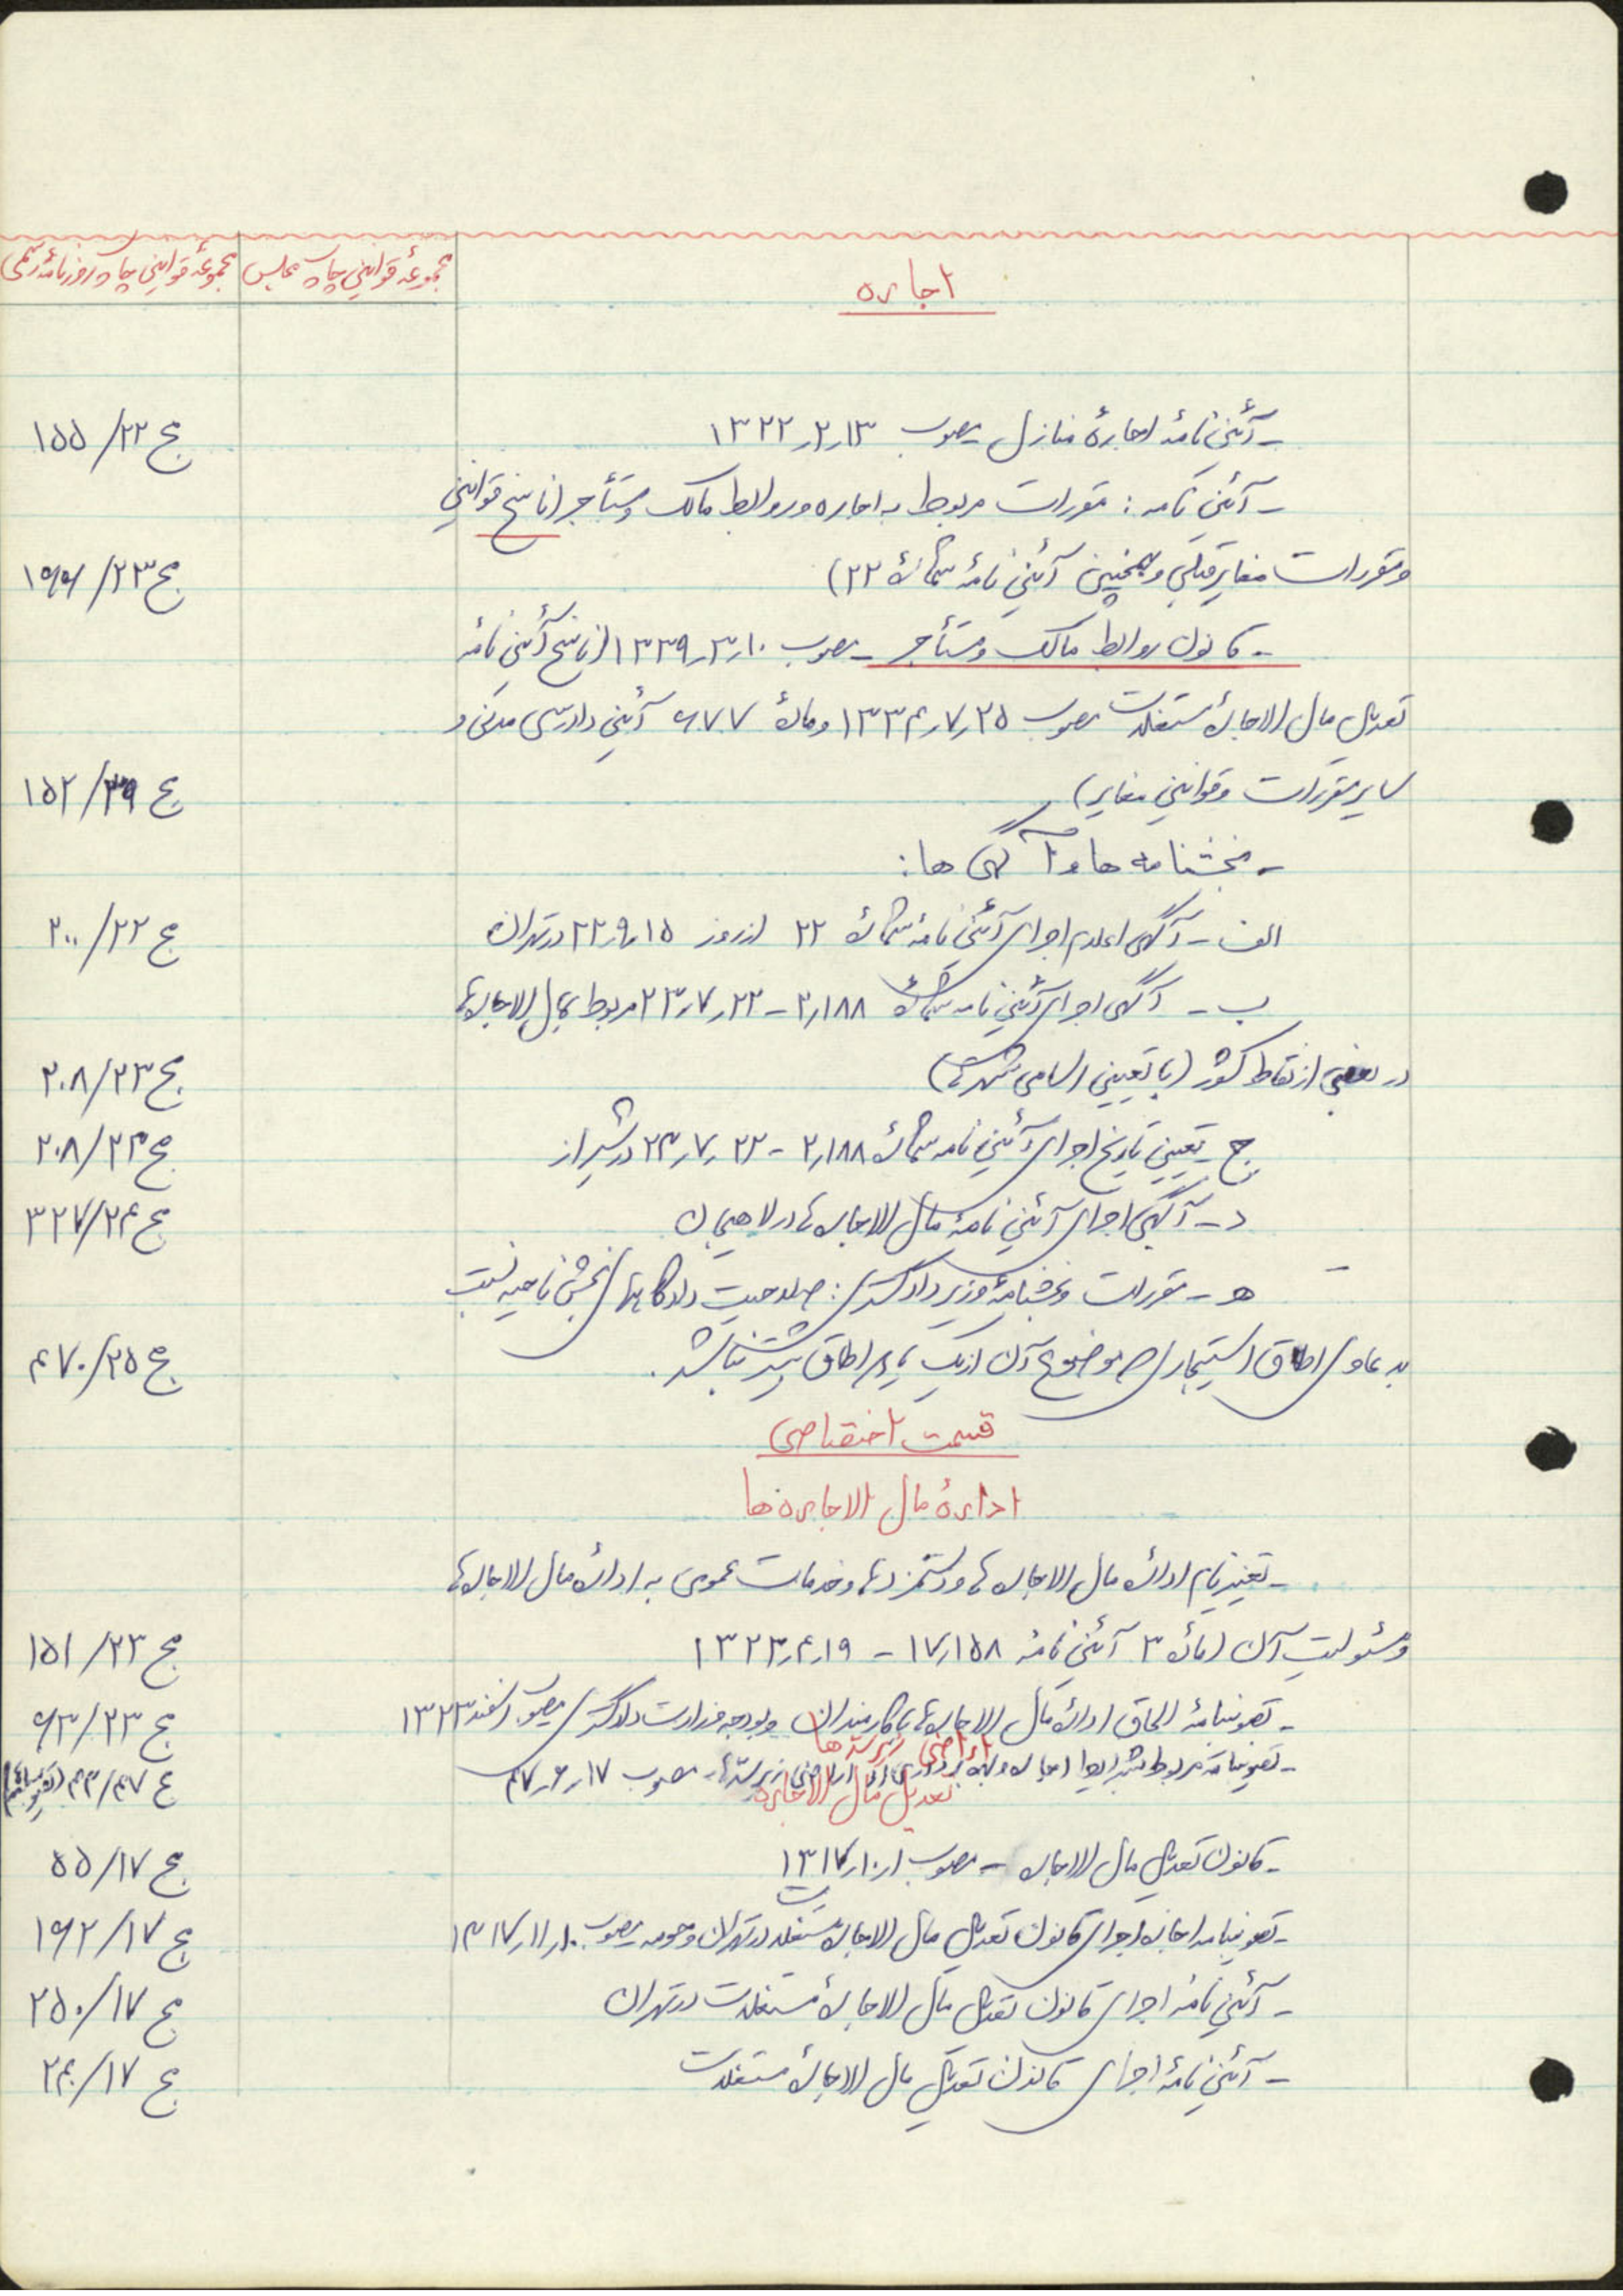 مجموعهٔ قوانین چاپ روزنامهٔ رسمی
مجموعهٔ قوانین چاپ مجلس
اجاره
- آئین‌نامهٔ اجارهٔ منازل مصوب ۱۳۲۲٫۲٫۱۳
ج ۲۲/ ۱۵۵
- آئین نامه : مقررات مربوط به اجاره و روابط مالک و مستأجر (ناسخ قوانین
و مقررات مغایر قبلی و همچنین آئین نامهٔ شمارهٔ ۲۲)
ج ۲۳/ ۱۶۶
- قانون روابط مالک و مستأجر - مصوب ۱۳۳۹٫۳٫۱۰ (ناسخ آئین نامهٔ
تعدیل مال الاجارهٔ مستغلات مصوب ۱۳۳۴٫۷٫۲۵ و مادهٔ ۶۷۷ آئین دادرسی مدنی و
سایر مقررات و قوانین مغایر)
ج ۳۹/ ۱۵۲
- بخشنامه ها و آگهی ها :
الف - آگهی اعلام اجرای آئین نامهٔ شمارهٔ ۲۲ از روز ۲۲٫۹٫۱۵ در تهران
ج ۲۲/ ۲۰۰
ب - آگهی اجرای آئین نامه شمارهٔ ۲٫۱۸۸ - ۲۳٫۷٫۲۲ مربوط بمال الاجاره‌ها
در بعضی از نقاط کشور (با تعیین اسامی شهرها)
ج ۲۳/ ۲۰۸
ج - تعیین تاریخ اجرای آئین نامه شمارهٔ ۲٫۱۸۸ - ۲۳٫۷٫۲۲ در شیراز
ج ۲۳/ ۲۰۸
د - آگهی اجرای آئین نامهٔ مال الاجاره‌ها در لاهیجان
ج ۲۴/ ۳۲۷
ه - مقررات و بخشنامهٔ وزیر دادگستری : صلاحیت دادگاههای بخش ناحیه نسبت
به دعاوی اطاق استیجاری که موضوع آن از یک یا دو اطاق بیشتر نباشد .
ج ۲۵/ ۴۷۰
قسمت اختصاصی
ادارهٔ مال الاجاره‌ها
- تغییر نام ادارهٔ مال الاجاره‌ها و دستمزدها و خدمات عمومی به ادارهٔ مال الاجاره‌ها
و مسئولیت آن (مادهٔ ۳ آئین نامهٔ ۱۷٫۱۵۸ - ۱۳۲۳٫۴٫۱۹
ج ۲۳/ ۱۵۱
- تصویبنامهٔ الحاق ادارهٔ مال الاجاره‌ها با کارمندان و بودجه بوزارت دادگستری مصوب اسفند ۱۳۲۳
ج ۲۳/ ۶۳
اراضی زیر سدها
- تصویبنامه مربوط بشرایط اجاره و بهره برداری از اراضی زیر سدها - مصوب ۴۷٫۶٫۱۷
ج ۴۷/ ۴۳
تعدیل مال الاجاره
- قانون تعدیل مال الاجاره - مصوب ۱۳۱۷٫۱۰٫۱
ج ۱۷/ ۵۵
- تصویبنامه اجازه اجرای قانون تعدیل مال الاجارهٔ مستغلات در تهران و حومه مصوب ۱۳۱۷٫۱۱٫۱۰
ج ۱۷/ ۱۶۲
- آئین نامهٔ اجرای قانون تعدیل مال الاجارهٔ مستغلات در تهران
ج ۱۷/ ۲۵۰
- آئین نامهٔ اجرای قانون تعدیل مال الاجارهٔ مستغلات
ج ۱۷/ ۲۴۰